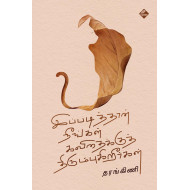 இப்படித்தான்
நீங்கள்
கவிதைக்குத்
திரும்புகிறீர்கள்
தாரங்கிணி